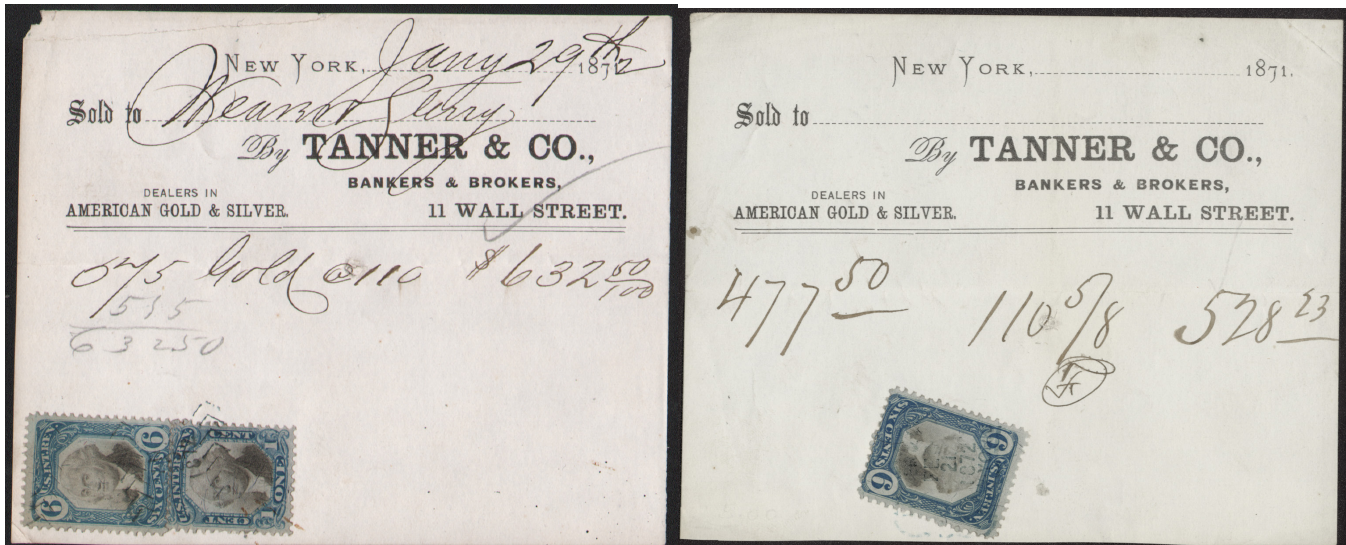 NEW YORK, Jany 29th 1872
Sold to
By TANNER & CO.,
BANKERS & BROKERS,
DEALERS IN
AMERICAN GOLD & SILVER. 11 WALL STREET.
575 Gold @ 110 $632 50/100
575
63250
U.S. INT. REV.
6 6
SIX CENTS
U.S. INT. REV.
ONE CENT
1 1
NEW YORK, 1871.
Sold to
By TANNER & CO.,
BANKERS & BROKERS,
DEALERS IN
AMERICAN GOLD & SILVER. 11 WALL STREET.
477 50 110 5/8 528 23
SIX CENTS
6 6
U.S. INT. REV.